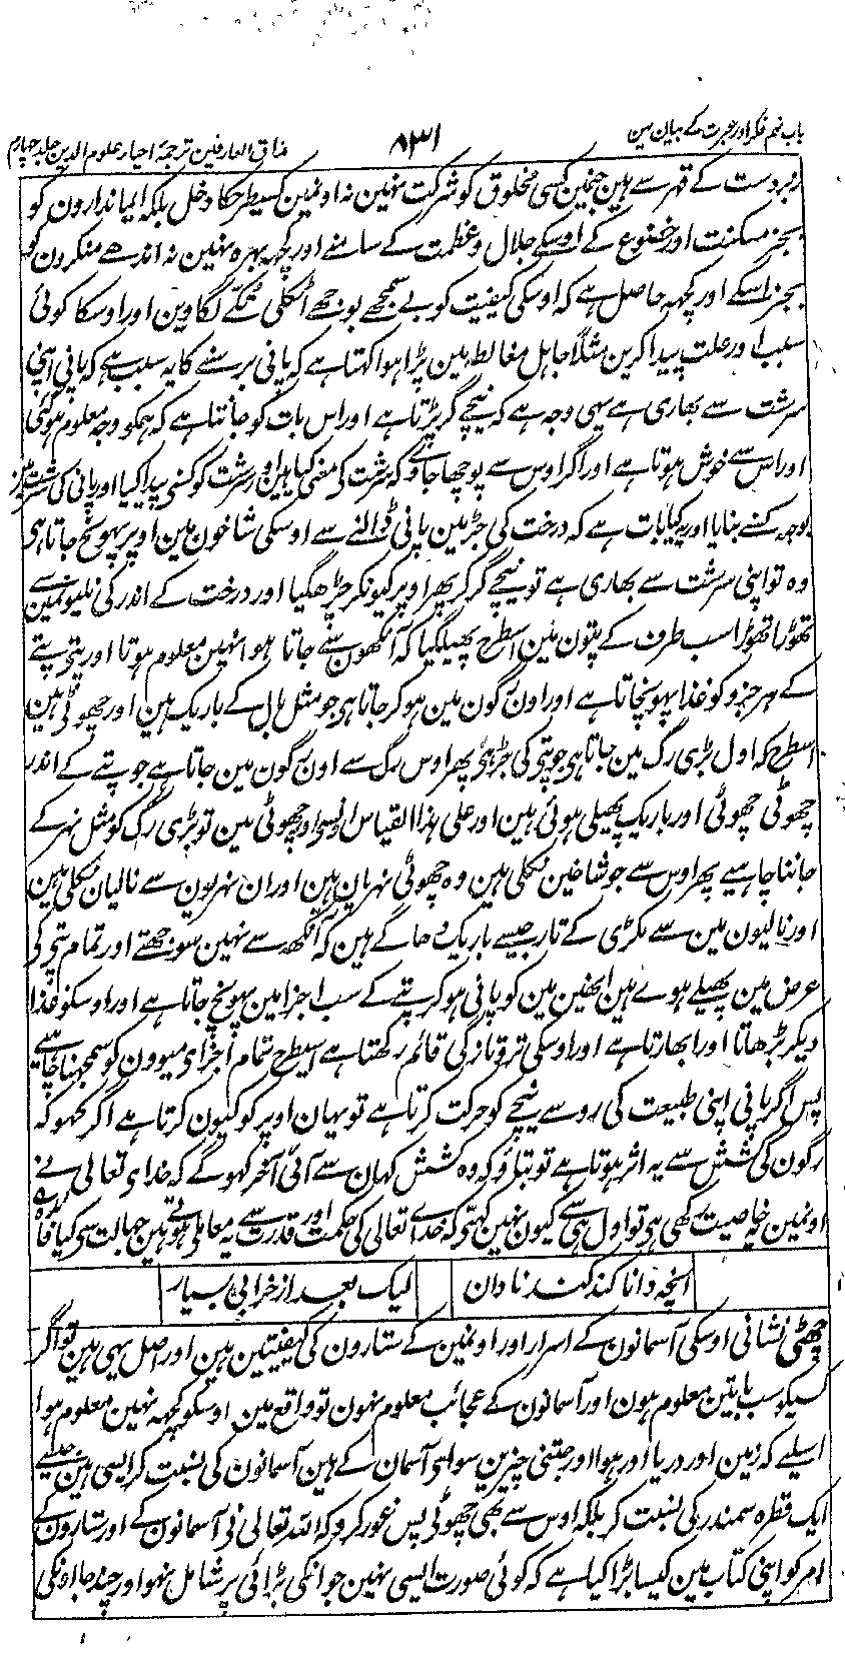 باب نہم فکر اور عبرت کے بیان مین
۸۳۱
مذاق العارفین ترجمۂ احیاء علوم الدین جلد چہارم
زبردست کے قہر سے ہین جنمین کسی مخلوق کو شرکت نہین نہ اونمین کسیطرحکا دخل بلکہ ایماندارون کو
بجز مسکنت اور خضوع کے اوسکے جلال و عظمت کے سامنے اور کچھہ بہرہ نہین نہ اندھے منکرون کو
بجز اسکے اور کچھہ حاصل ہے کہ اوسکی کیفیت کو بے سمجھے بوجھے اٹکلی تُکے لگاوین اور اوسکا کوئی
سبب اور علت پیدا کرین مثلاً جاہل مغالطہ مین پڑا ہوا کہتا ہے کہ پانی برسنے کا یہ سبب ہے کہ پانی اپنی
سرشت سے بھاری ہے یہی وجہ ہے کہ نیچے گر پڑتا ہے اور اس بات کو جانتا ہے کہ ہمکو وجہ معلوم ہوگئی
اور اس سے خوش ہوتا ہے اور اگر اوس سے پوچھا جاوے کہ سرشت کی معنی کیا ہین اور سرشت کو کسنے پیدا کیا اور پانی کی سرشت مین
بوجہ کسنے بنایا اور یہ کیا بات ہے کہ درخت کی جڑ مین پانی ڈالنے سے اوسکی شاخون مین اوپر پہونچ جاتا ہی
وہ تو اپنی سرشت سے بھاری ہے تو نیچے گر کر پھر اوپر کیونکر چڑھگیا اور درخت کے اندر کی نلیونمین سے
تھوڑا تھوڑا سب طرف کے پتون مین اسطرح پھیلگیا کہ آنکھون سے جاتا ہوا نہین معلوم ہوتا اور ہر پتے
کے ہر جزو کو غذا پہونچاتا ہے اور اون رگون مین ہو کر جاتا ہی جو مثل بال کے باریک ہین اور چھوٹی ہین
اسطرح کہ اول بڑی رگ مین جاتا ہی جو پتی کی جڑ ہی پھر اوس رگ سے اون رگون مین جاتا ہے جو پتے کے اندر
چھوٹی چھوٹی اور باریک پھیلی ہوئی ہین اور علی ہذا القیاس اونسے اور چھوٹی مین تو بڑی رگ کو مثل نہر کے
جاننا چاہیے پھر اوس سے جو شاخین نکلی ہین وہ چھوٹی نہرین ہین اور ان نہرون سے نالیان نکلی ہین
اور نالیون مین سے مکڑی کے تار جیسے باریک دھاگے ہین کہ آنکھ سے نہین سوجھتے اور تمام پتی کی
عرض مین پھیلے ہوے ہین انھین مین کو پانی ہو کر پتے کے سب اجزا مین پہونچ جاتا ہے اور اوسکو غذا
دیکر بڑھاتا اور ابھارتا ہے اور اوسکی تروتازگی قائم رکھتا ہے اسیطرح تمام اجزای میوون کو سمجہنا چاہیے
پس اگر پانی اپنی طبیعت کی رو سے نیچے کو حرکت کرتا ہے تو یہان اوپر کو کیون کرتا ہے اگر کہو کہ
رگون کی کشش سے یہ اثر ہوتا ہے تو بتلاؤ کہ وہ کشش کہان سے آئی آخر کہو گے کہ خدای تعالی نے
اونمین یہ خاصیت رکھی ہی تو اول ہی سے کیون نہین کہتے کہ خداے تعالی کی حکمت اور قدرت سے یہ معاملے ہوتے ہین جہالت سی کیا فائدہ
آنچہ دانا کند کند نادان
لیک بعد از خرابی بسیار
چھٹی نشانی اوسکی آسمانون کے اسرار اور اونمین کے ستارون کی کیفیتین ہین اور اصل یہی ہین تو اگر
کسیکو سب باتین معلوم ہون اور آسمانون کے عجائب معلوم نہون تو واقع مین اوسکو کچہہ نہین معلوم ہوا
اسلیے کہ زمین اور دریا اور ہوا اور جتنی چیزین سوای آسمان کے ہین آسمانون کی نسبت کر ایسی ہین جیسے
ایک قطرہ سمندر کی نسبت کر بلکہ اوس سے بھی چھوٹی پس غور کرو کہ اللہ تعالی نی آسمانون کے اور ستارون کے
امر کو اپنی کتاب مین کیسا بڑا کیا ہے کہ کوئی صورت ایسی نہین جو انکی بڑائی پر شامل نہو اور چند جا اونکی